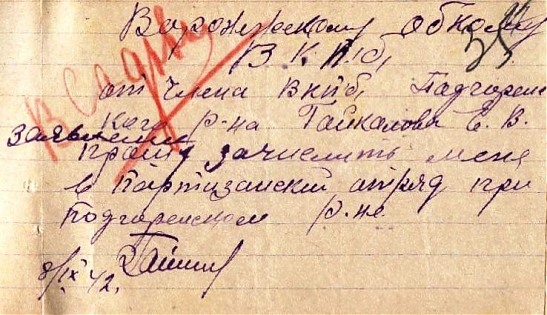 Воронежскому обкому
В К П(б)
от члена ВКП(б) Подгоренс
кого р-на Гайкалова Е. В.
заявление
прошу зачислить меня
в Партизанский отряд при
Подгоренском р-не
8/IX 42.
В Садлк